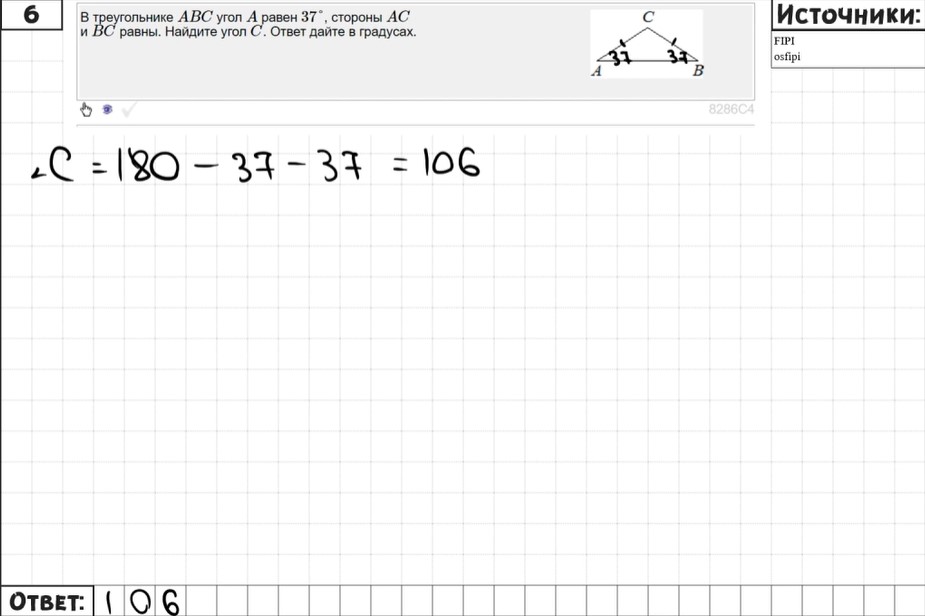 6
В треугольнике ABC угол A равен 37°, стороны AC
и BC равны. Найдите угол C. Ответ дайте в градусах.
C
37 37
A B
Источники:
FIPI
osfipi
8286C4
∠C = 180 - 37 - 37 = 106
ОТВЕТ: 106